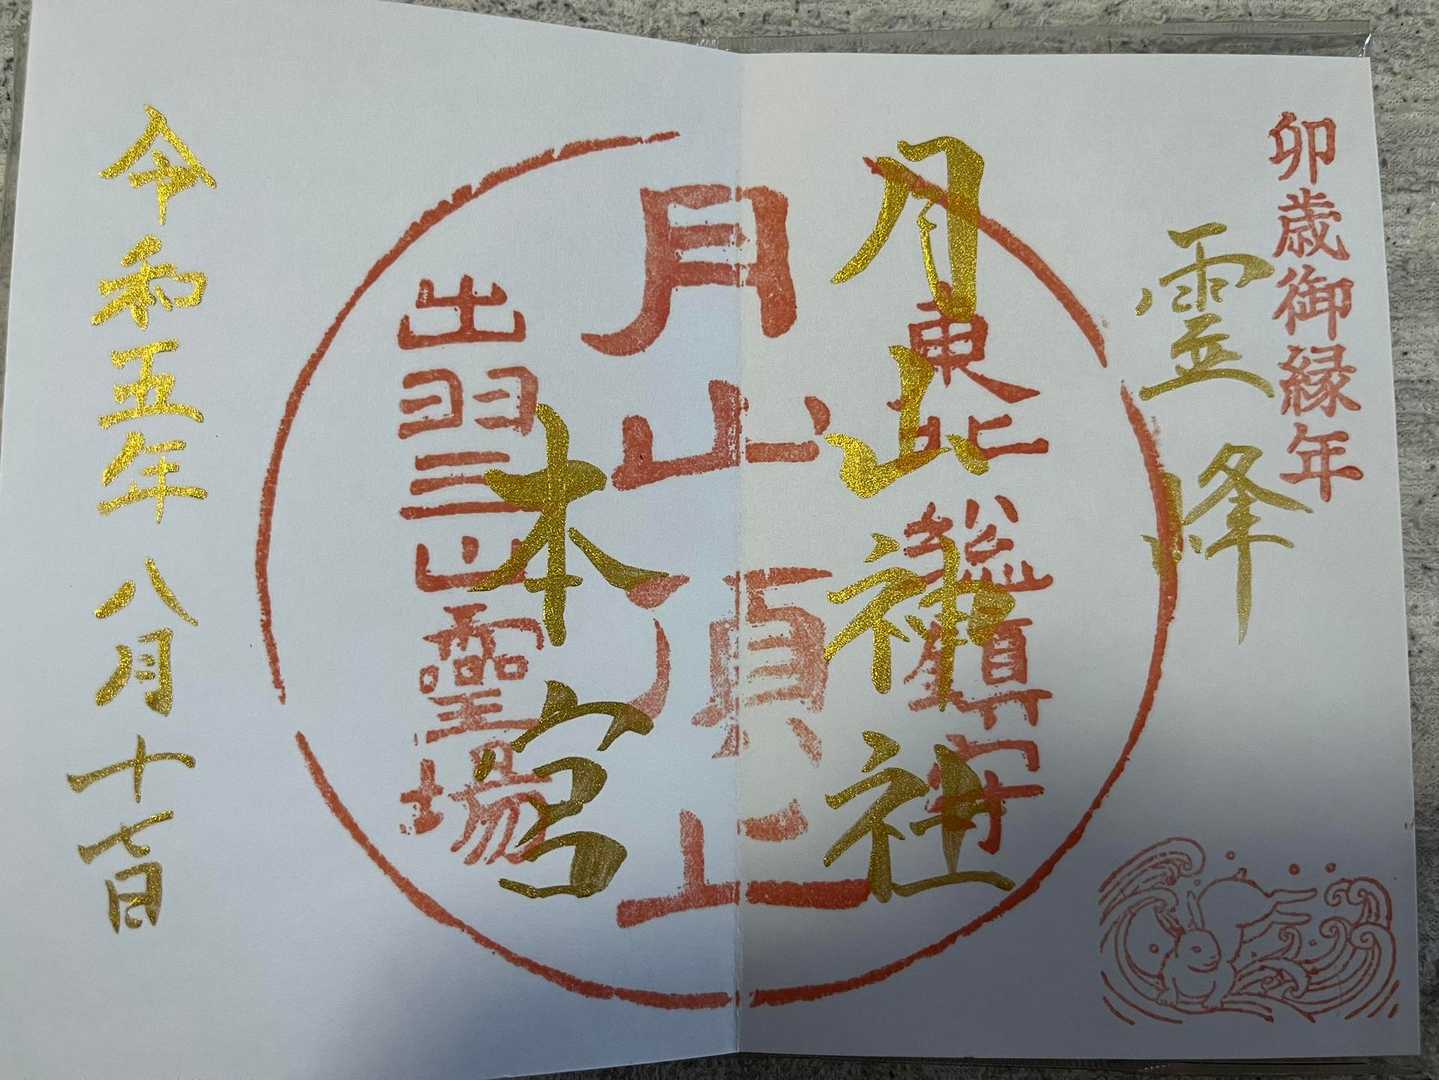 卯歳御縁年
霊峰
月山神社
本宮
東北総鎮守
月山頂上
出羽三山霊場
令和五年八月十七日